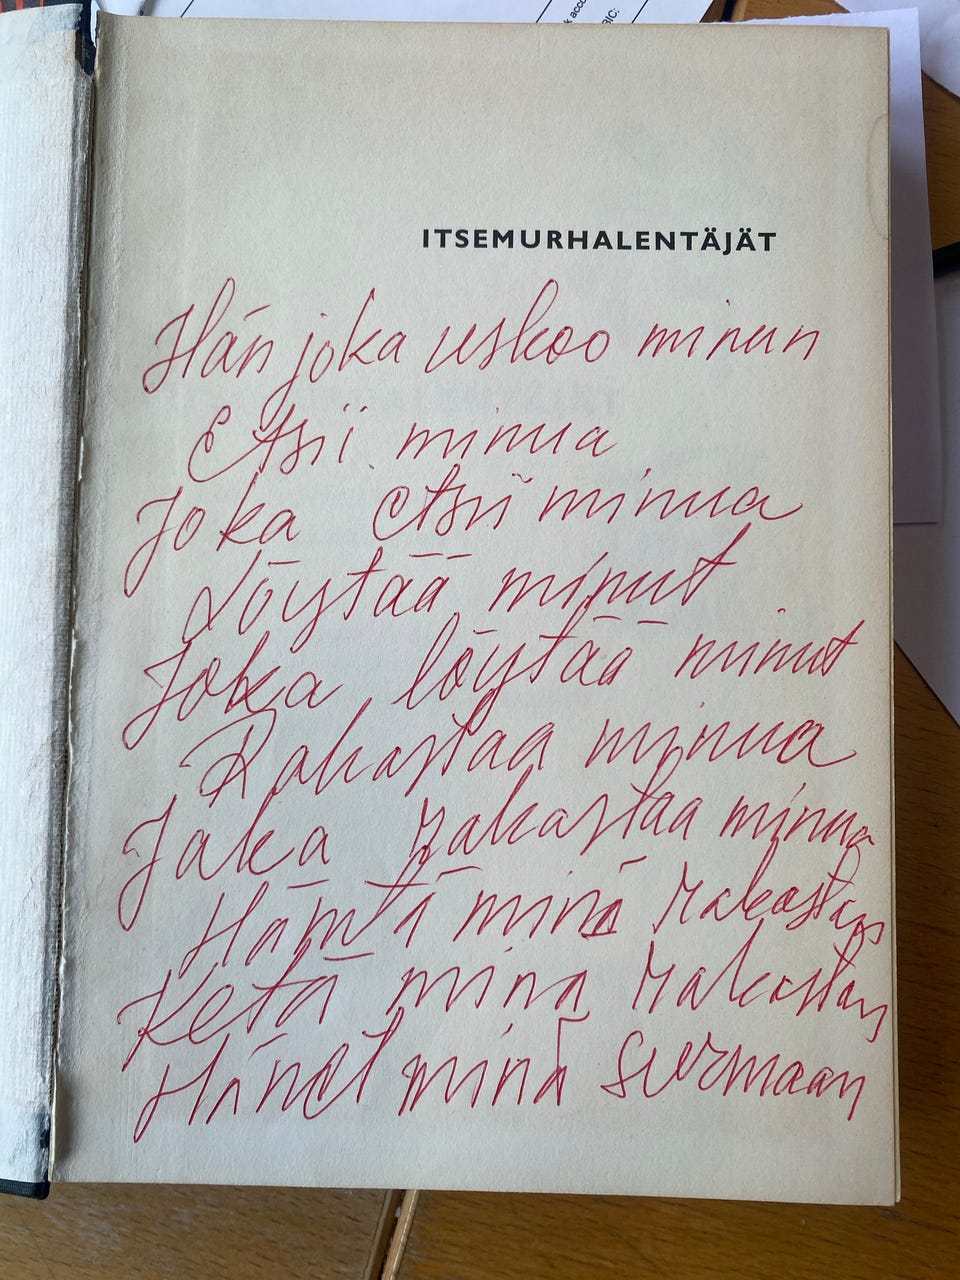 k acco
BIC:
ITSEMURHALENTÄJÄT
Hän joka uskoo minun
Etsii minua
Joka etsii minua
Löytää minut
Joka löytää minut
Rakastaa minua
Joka rakastaa minua
Häntä minä rakastan
Ketä minä rakastan
Hänet minä surmaan